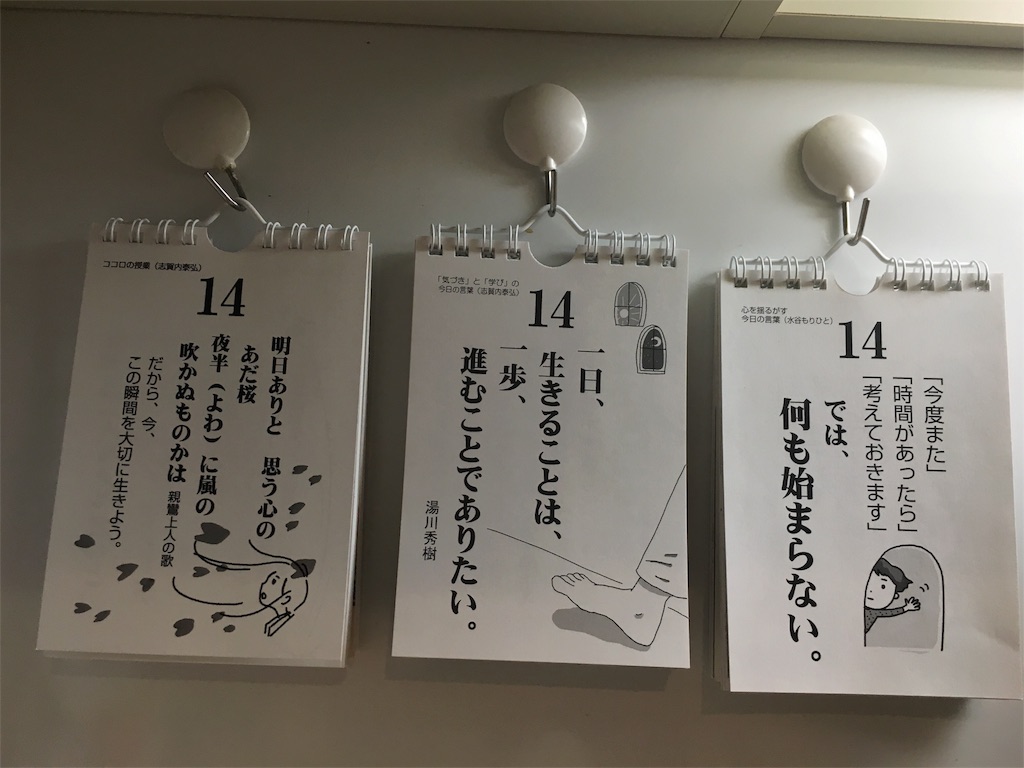 ココロの授業（志賀内泰弘）
14
明日ありと　思う心の
あだ桜
夜半（よわ）に嵐の
吹かぬものかは
親鸞上人の歌
だから、今、
この瞬間を大切に生きよう。
「気づき」と「学び」の
今日の言葉（志賀内泰弘）
14
一日、
生きることは、
一歩、
進むことでありたい。
湯川秀樹
心を揺るがす
今日の言葉（水谷もりひと）
14
「今度また」
「時間があったら」
「考えておきます」
では、
何も始まらない。